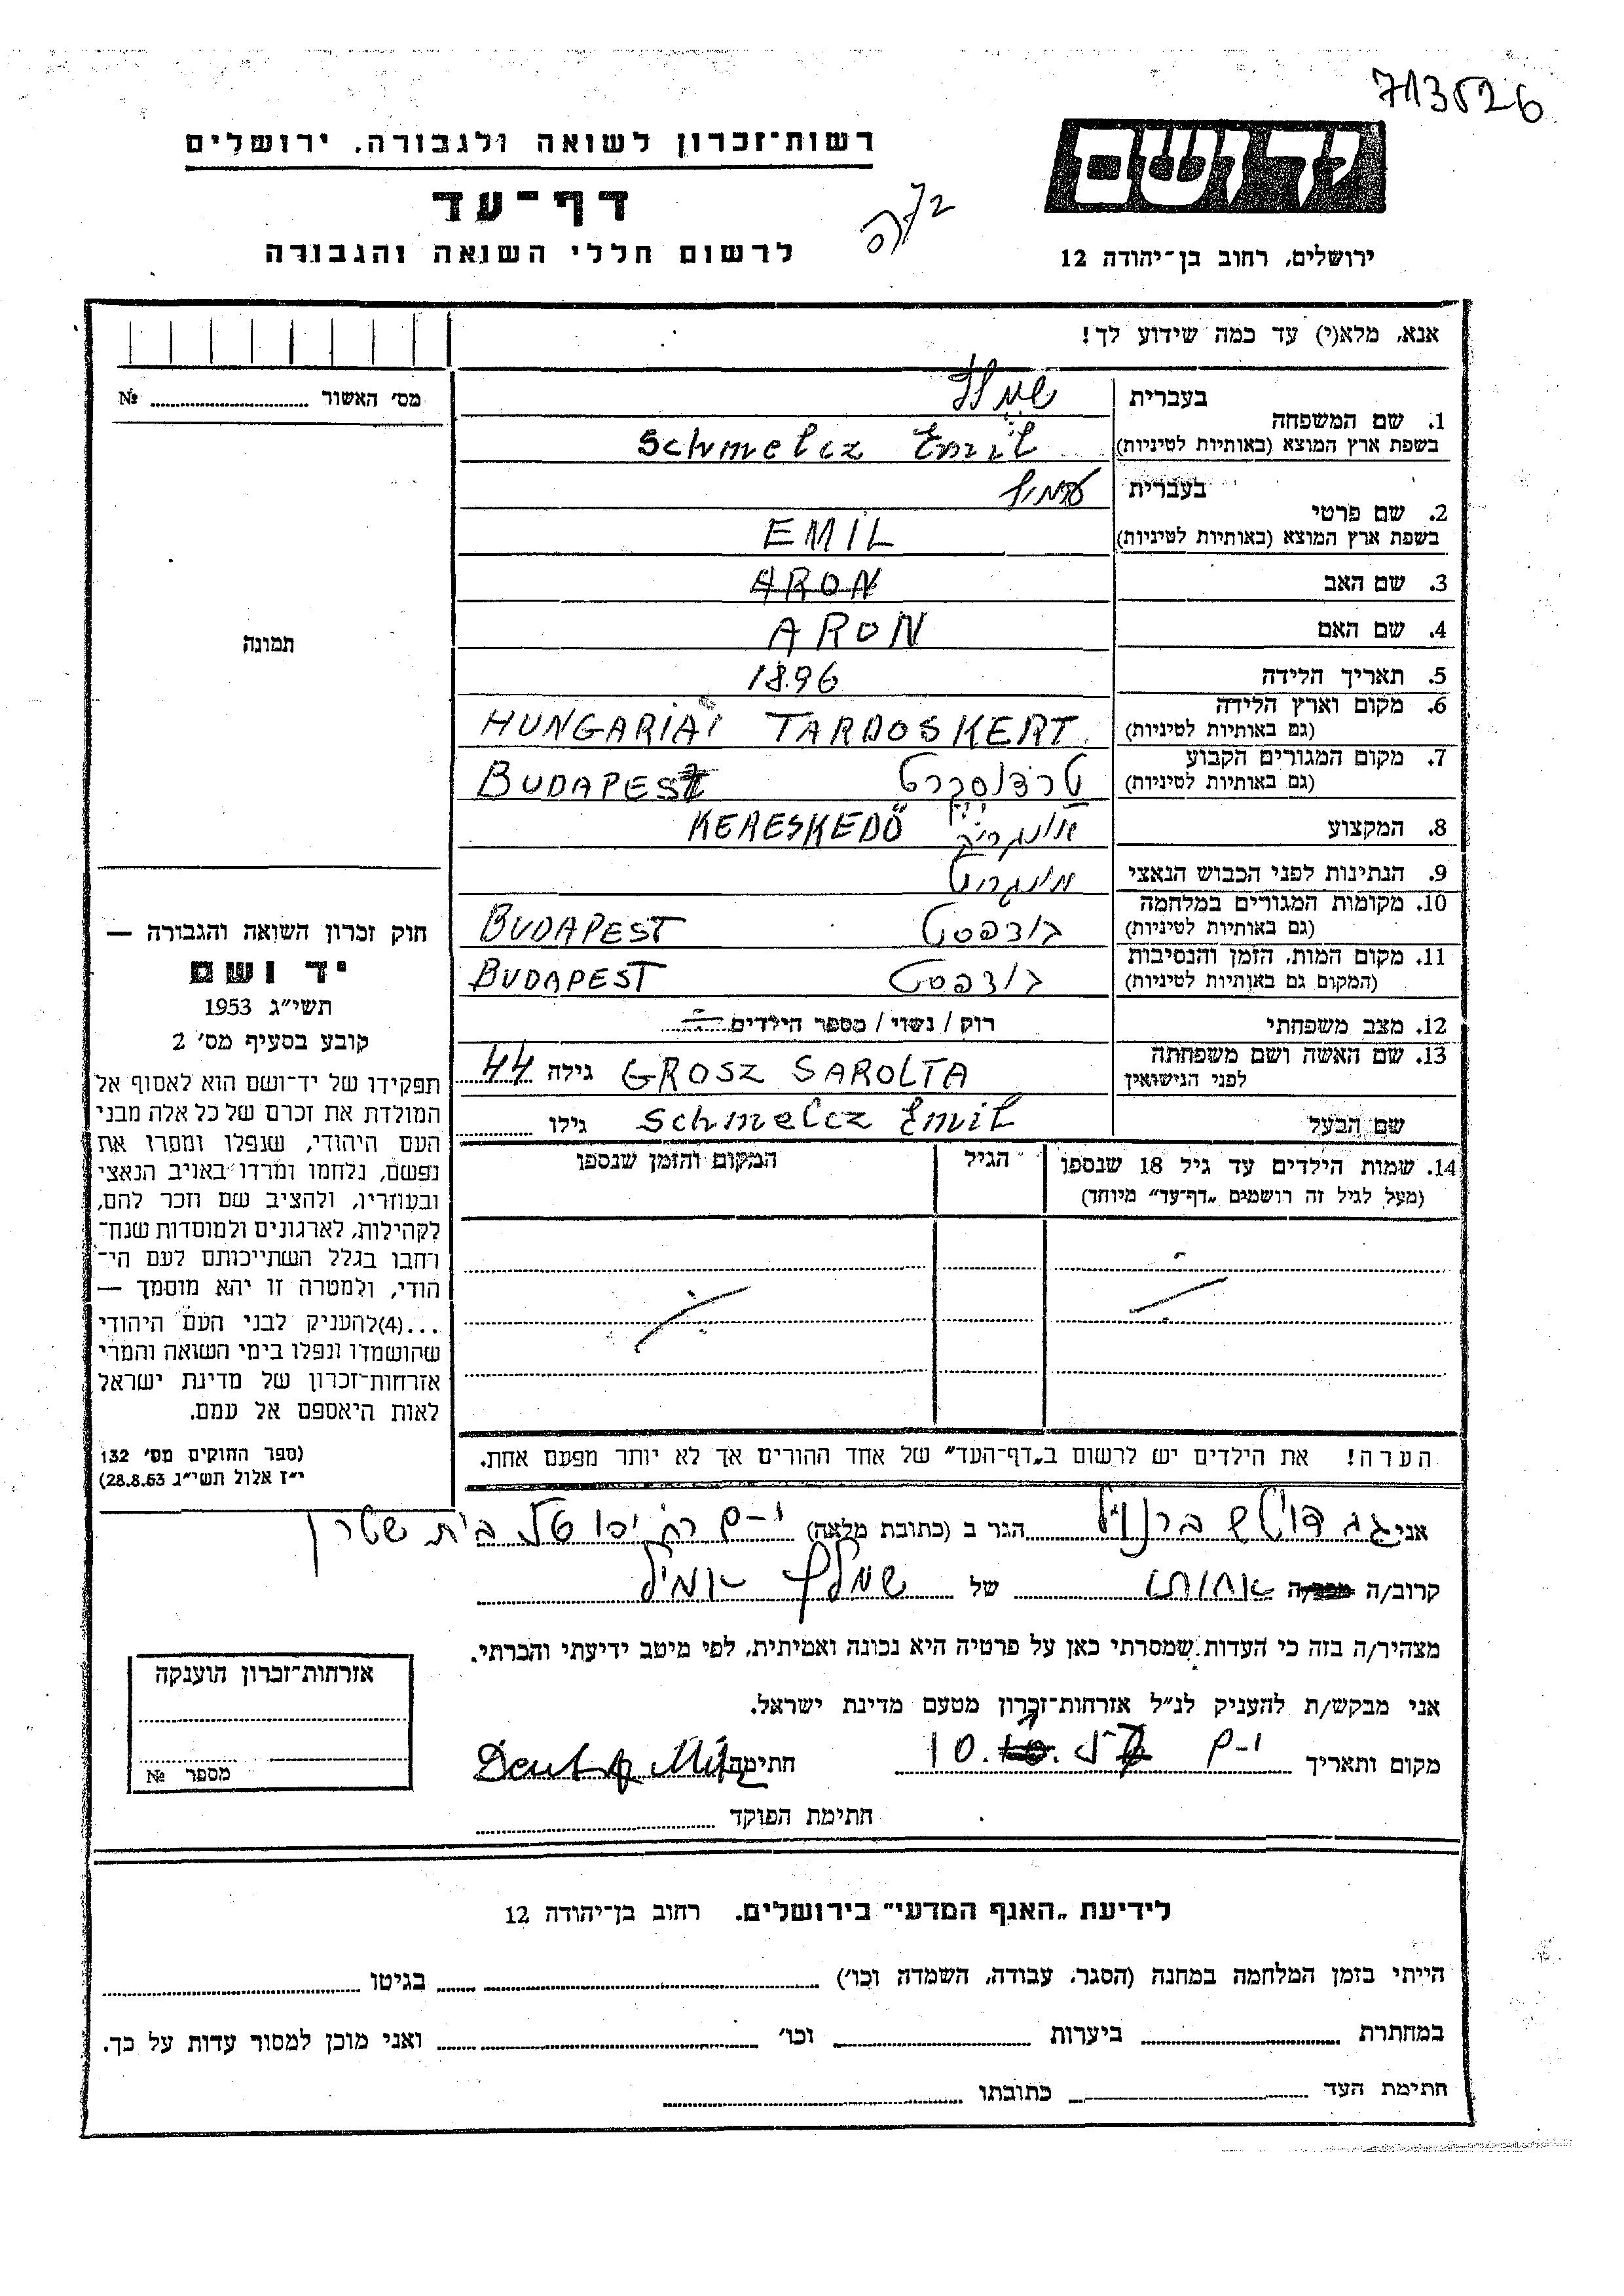 713526
רשות־זכרון לשואה ולגבורה, ירושלים
דף־עד
לרשום חללי השואה והגבורה
יד ושם
ירושלים, רחוב בן־יהודה 12
אנא, מלא(י) עד כמה שידוע לך!
מס׳ האשור № ........
1. שם המשפחה בעברית
בשפת ארץ המוצא (באותיות לטיניות) Schmelcz Emil
2. שם פרטי בעברית
בשפת ארץ המוצא (באותיות לטיניות) EMIL
3. שם האב ARON
4. שם האם ARON
5. תאריך הלידה 1896
6. מקום וארץ הלידה
(גם באותיות לטיניות) HUNGARIAI TARDOSKERT
7. מקום המגורים הקבוע
(גם באותיות לטיניות) BUDAPEST
8. המקצוע KERESKEDŐ
9. הנתינות לפני הכבוש הנאצי
10. מקומות המגורים במלחמה
(גם באותיות לטיניות) בודפסט BUDAPEST
11. מקום המות, הזמן והנסיבות
(המקום גם באותיות לטיניות) בודפסט BUDAPEST
12. מצב משפחתי רוק / נשוי / מספר הילדים
13. שם האשה ושם משפחתה
לפני הנישואין GROSZ SAROLTA גילה 44
שם הבעל Schmelcz Emil גילו ........
14. שמות הילדים עד גיל 18 שנספו
(מעל לגיל זה רושמים „דף־עד״ מיוחד)
הגיל
המקום והזמן שנספו
הערה! את הילדים יש לרשום ב„דף־העד״ של אחד ההורים אך לא יותר מפעם אחת.
תמונה
חוק זכרון השואה והגבורה —
יד ושם
תשי״ג 1953
קובע בסעיף מס׳ 2
תפקידו של יד־ושם הוא לאסוף אל
המולדת את זכרם של כל אלה מבני
העם היהודי, שנפלו ומסרו את
נפשם, נלחמו ומרדו באויב הנאצי
ובעוזריו, ולהציב שם וזכר להם,
לקהילות, לארגונים ולמוסדות שנח־
רחבו בגלל השתייכותם לעם הי־
הודי, ולמטרה זו יהא מוסמך —
...(4)להעניק לבני העם היהודי
שהושמדו ונפלו בימי השואה והמרי
אזרחות־זכרון של מדינת ישראל
לאות היאספם אל עמם.
(ספר החוקים מס׳ 132
י״ז אלול תשי״ג 28.8.53)
אני דויטש הגר ב (כתובת מלאה) בית שטרן
קרוב/ה אחותו של שמלץ אמיל
מצהיר/ה בזה כי העדות שמסרתי כאן על פרטיה היא נכונה ואמיתית, לפי מיטב ידיעתי והכרתי.
אני מבקש/ת להעניק לנ״ל אזרחות־זכרון מטעם מדינת ישראל.
מקום ותאריך י-ם 10. חתימה
חתימת הפוקד ........
אזרחות־זכרון הוענקה
מספר №
לידיעת „האגף המדעי״ בירושלים. רחוב בן־יהודה 12
הייתי בזמן המלחמה במחנה (הסגר, עבודה, השמדה וכו׳) ........ בגיטו ........
במחתרת ........ ביערות ........ וכו׳ ........ ואני מוכן למסור עדות על כך.
חתימת העד ........ כתובתו ........